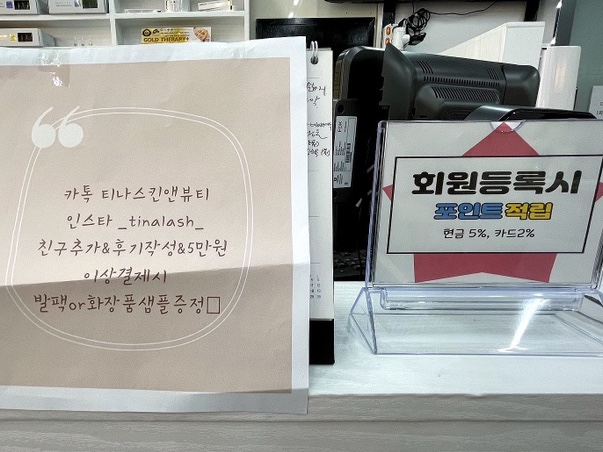 카톡 티나스킨앤뷰티
인스타 _tinalash_
친구추가&후기작성&5만원
이상결제시
발팩or화장품샘플증정□
회원등록시
포인트적립
현금 5%, 카드2%
GOLD THERAPY+